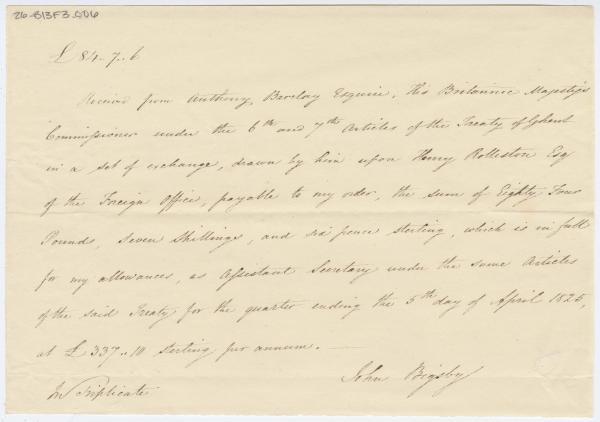 26-B13F3.006
£84..7..6
Received from Anthony Barclay Esquire, His Britannic Majesty's
Commissioner under the 6th and 7th Articles of the Treaty of Ghent
in a set of exchange, drawn by him upon Henry Rolleston Esq
of the Foreign Office, payable to my order, the sum of Eighty Four
Pounds, seven Shillings, and six pence sterling, which is in full
for my allowances, as Assistant Secretary under the same Articles
of the said Treaty for the quarter ending the 5th day of April 1825,
at £337..10 sterling per annum.
John Bigsby
In Triplicate